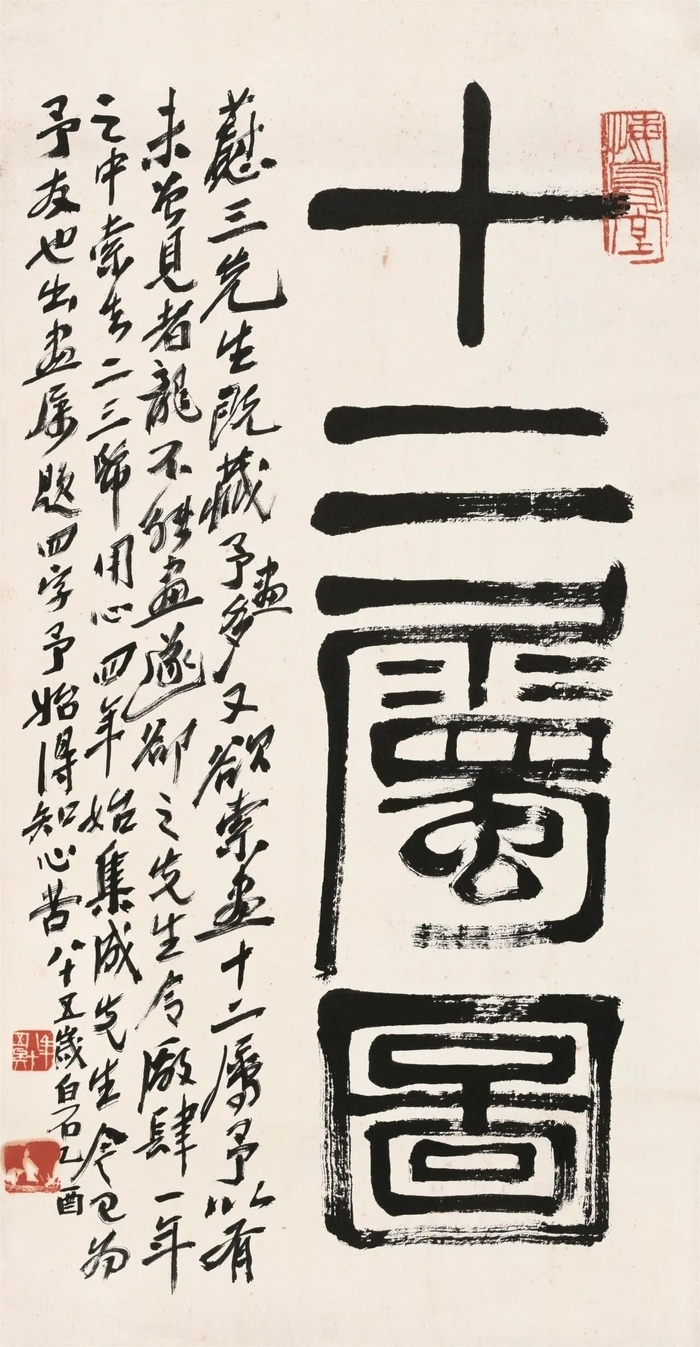 悔烏堂
十二屬圖
三先生既藏予畫多又欲索畫十二屬予以有
未曾見者龍不能畫遂卻之先生令厰肆一年
之中索去二三幅用心四年始集成先生今已為
予友也出畫屬題四字予始得知心苦八十五歲白石乙酉